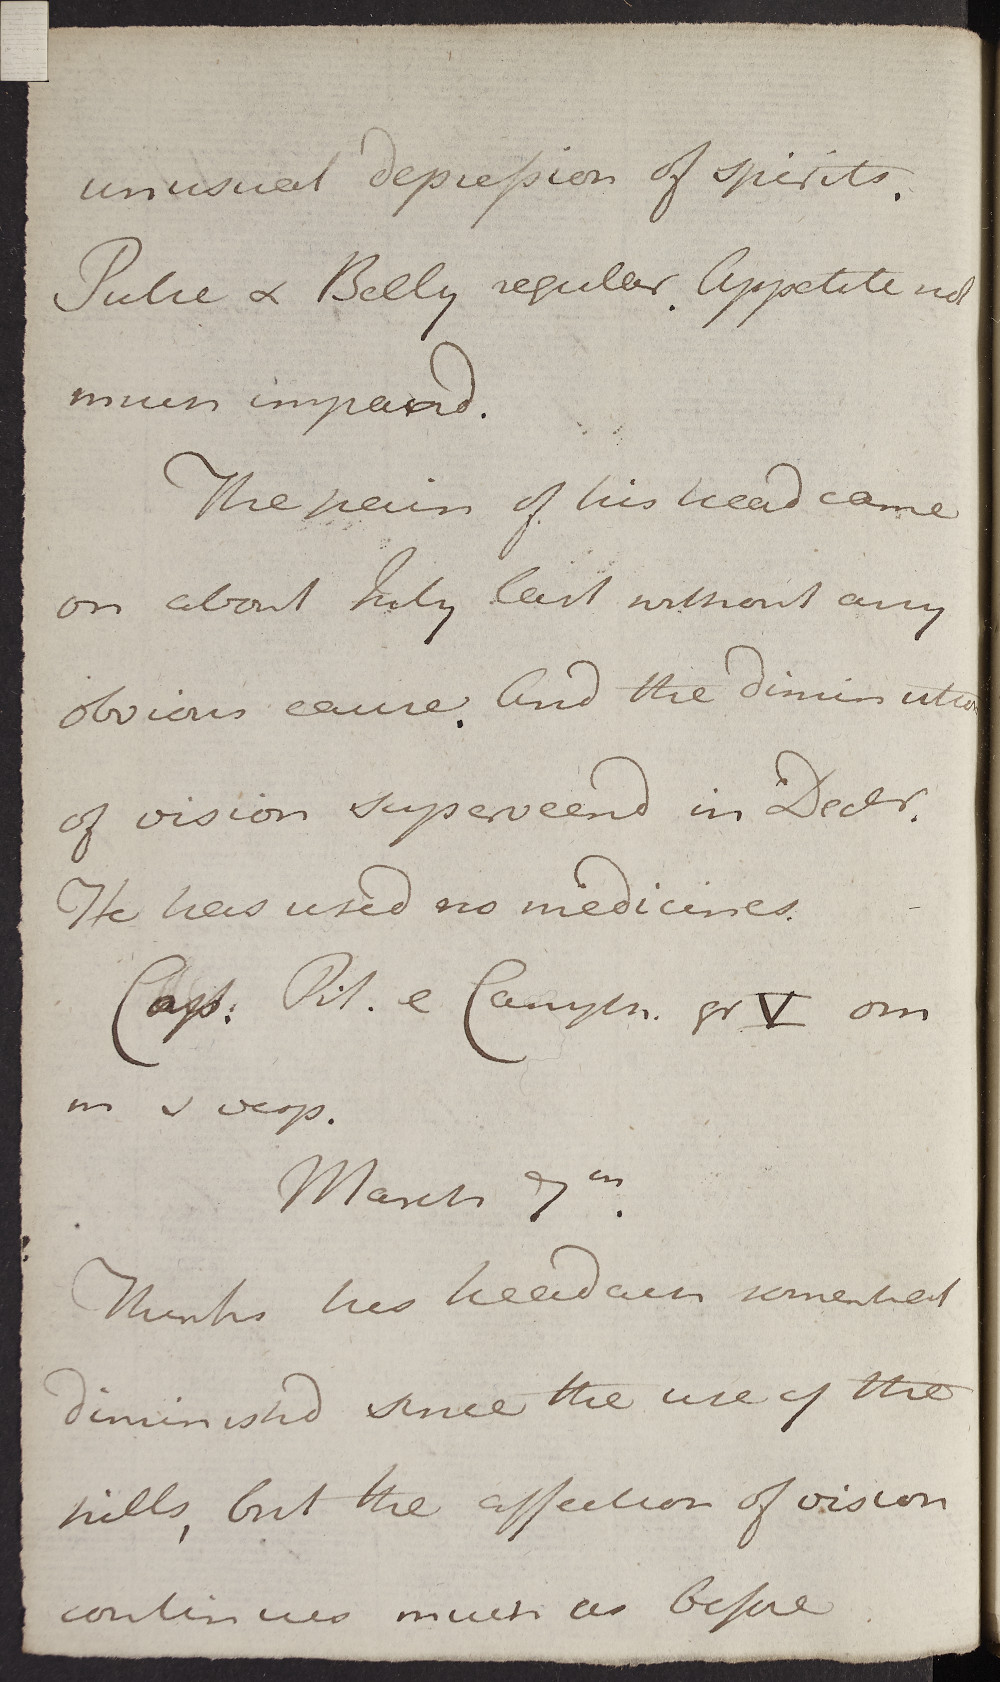 unusual depression of spirits.
Pulse & Belly regular. Appetite not
much impaird.
The pain of his head came
on about July last without any
obvious cause. And the diminution
of vision superveend in Decr.
He has used no medicines.
Capt. Pil. e gr V om
m & vesp.
March 7th.
Thinks his headach somewhat
diminishd since the use of the
pills, but the affection of vision
continues much as before